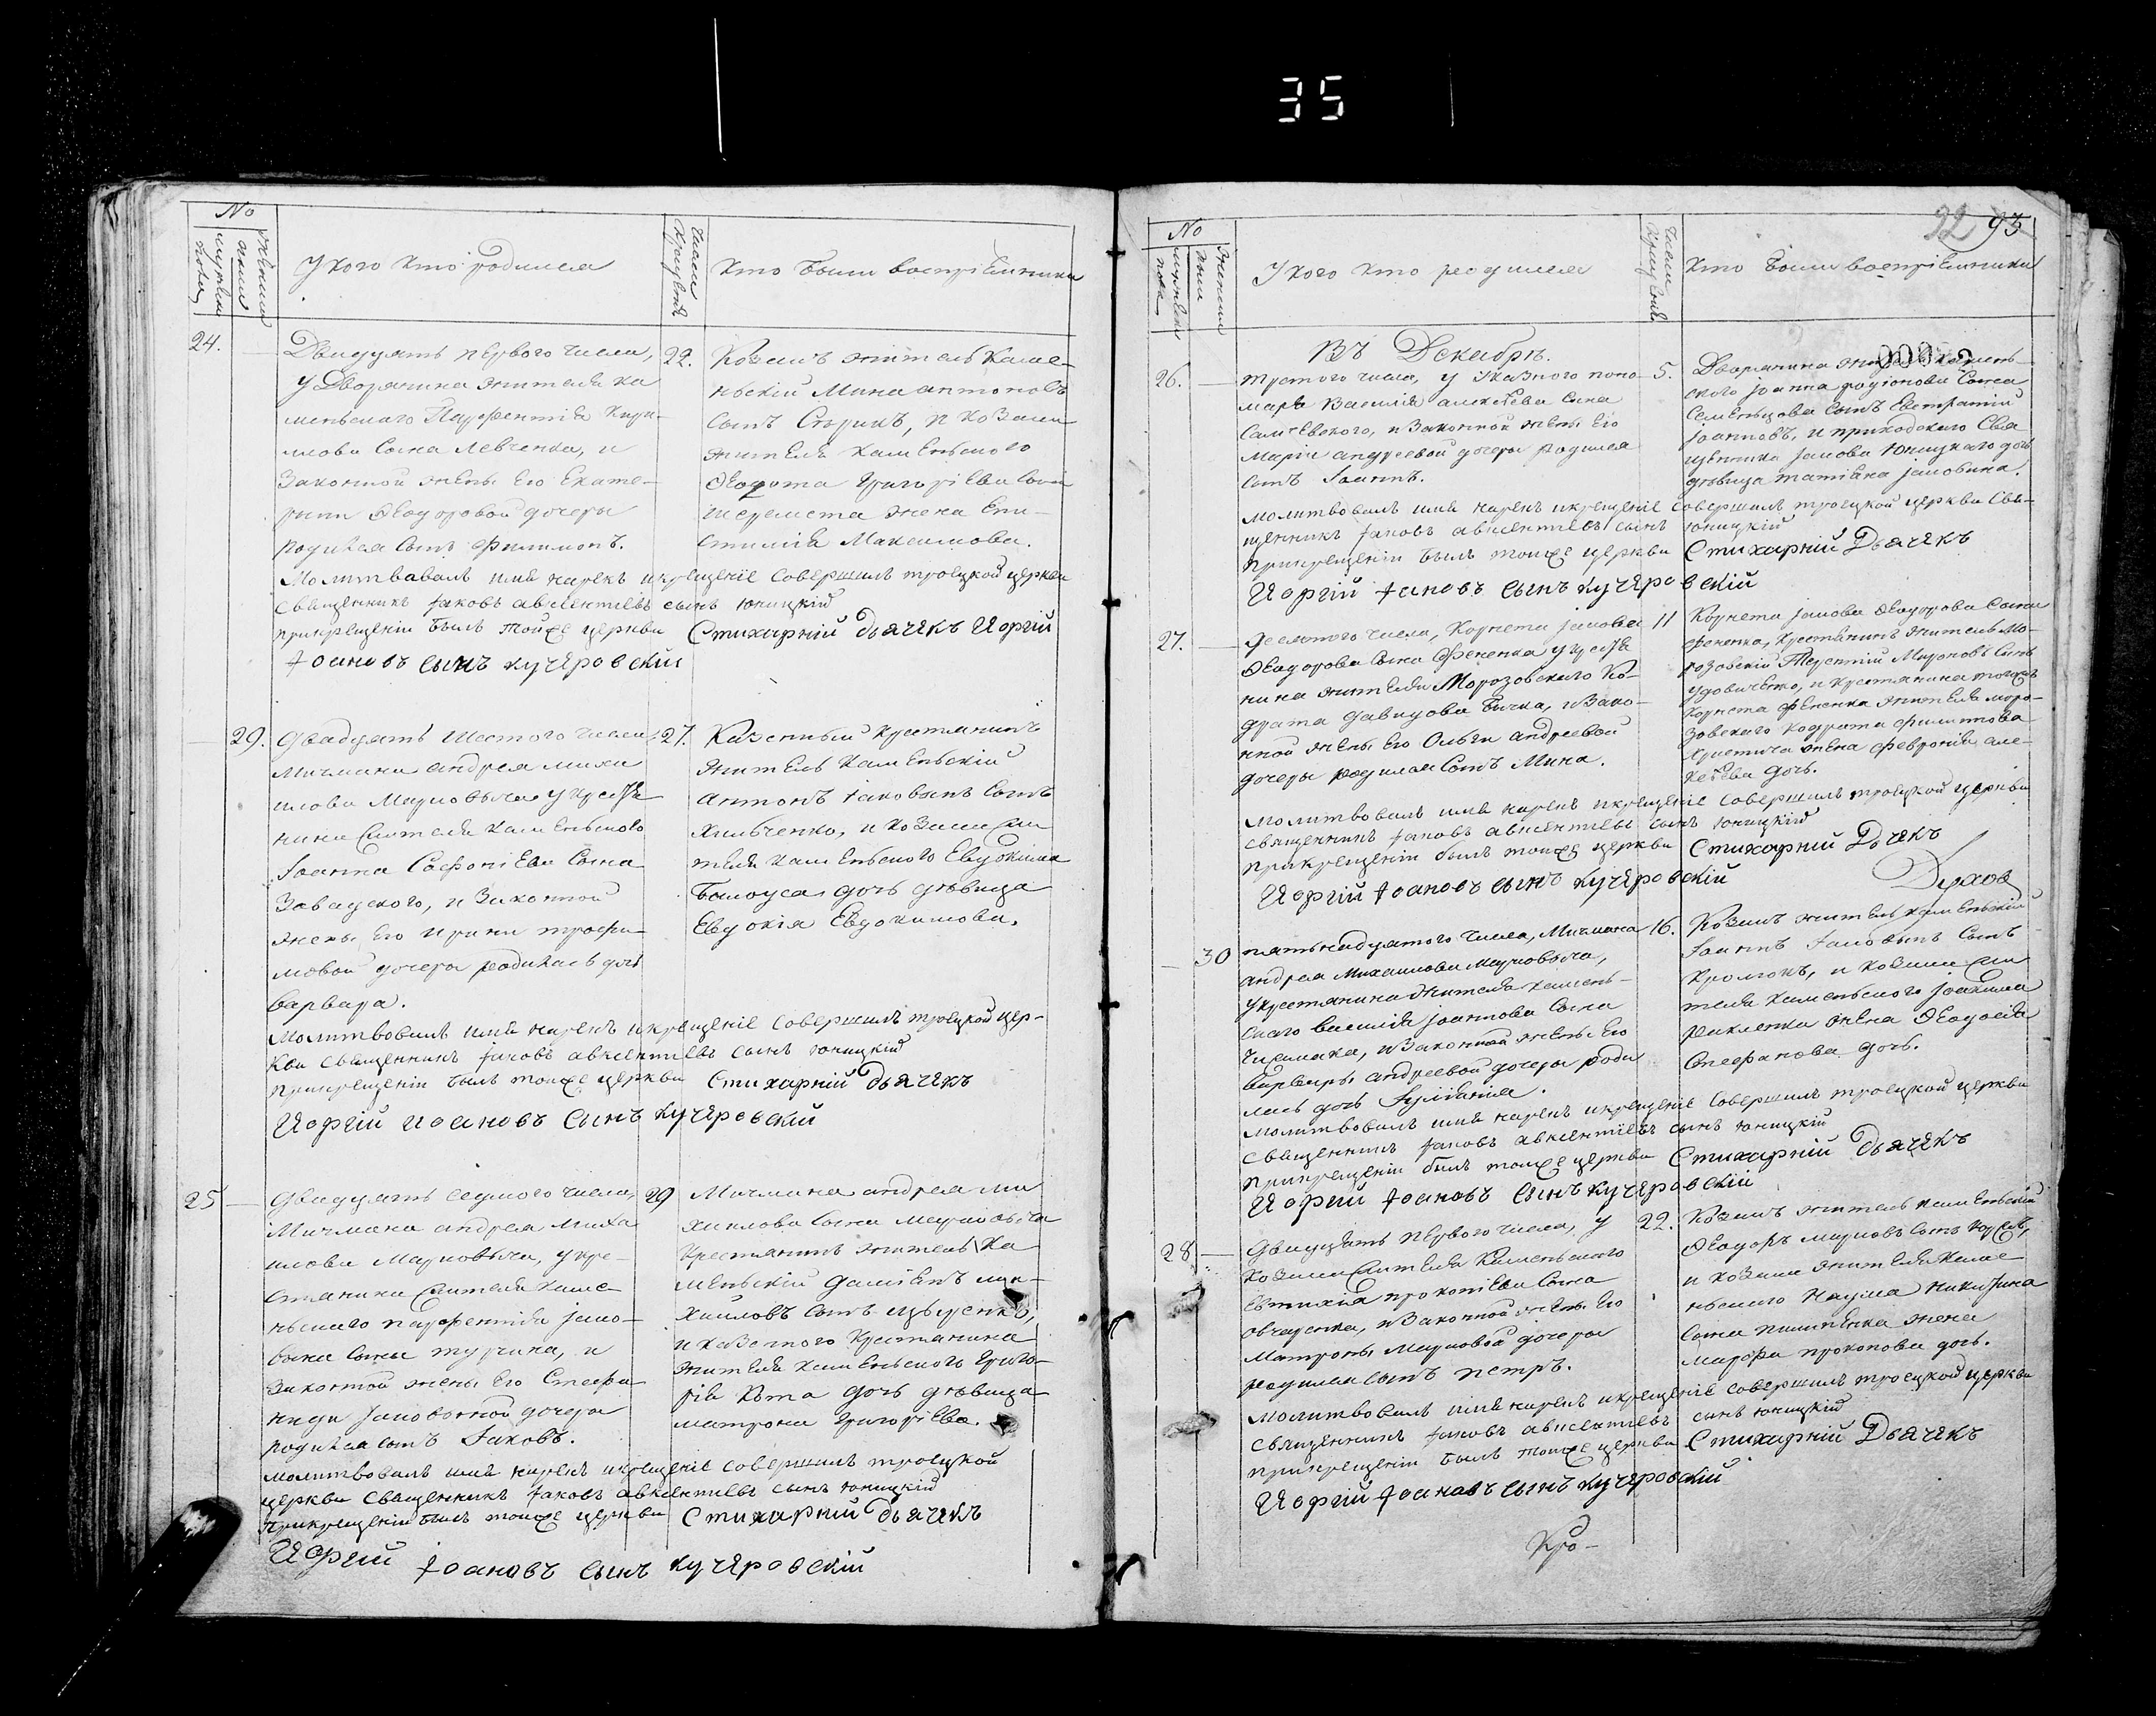 35
№
мужеска пола
женска
У кого кто родился
Числа крещенія
Кто были воспріемники
24.
Двадцять первого числа,
у Дворянина жителя ка
меньского Парфентія Кири-
лова сына Левченка, и
законной жены его Екате-
рини Ѳеодоровой дочеры
родился сынъ Филимонъ.
22.
Козакъ житель Каме-
ньскій Мина антоновъ
сынъ Старикъ, и козака
жителя каменьского
Ѳедота Григоріева сина
шеремета жена Епи-
стимія Максимова.
Молитвовалъ имя нарекъ икрещеніе совершилъ троецкой церкви
священникъ Іаковъ авксентіевъ сынъ юницкій
прикрещеніи былъ тойже церкви Стихарній дьячекъ Иоргій
Іоановъ сынъ кучеровскій
29.
двадцять шестого числа
Мичмана андрея миха
илова Марковыча у кресть
нина жителя каменьского
Іоанна Софоніева сына
Завадского, и законной
жены его ирини трофи-
мовой дочеры родилась дочь
варвара.
27.
Казенный крестянинъ
житель каменьскій
антонъ іаковынъ сынъ
хильченко, и козака жи
теля каменьского Евдокима
Билоуса дочь дѣвица
Евдокія Евдокимова.
Молитвовалъ имя нарекъ икрещеніе совершилъ троецкой цер-
кви священникъ Іаковъ авксентіевъ сынъ юницкій
прикрещеніи былъ тойже церкви Стихарній дьячекъ
Иоргій иоановъ сынъ кучеровскій
25
Двадцять седмого числа,
Мичмана андрея миха
илова Марковыча, укре-
стянина жителя каме-
ньского парфентія іако-
выча сына турчина, и
законной жены его Стефа
ниди іаковлевой дочеры
родился сынъ Іаковъ.
29
Мичмана андрея ми
хаилова сына марковыча
крестянинъ житель ка
меньскій даміенъ ми-
хаиловъ сынъ
и казенного крестянина
жителя каменьского григо-
рія кота дочь дѣвица
матрона григоріева.
молитвовалъ имя нарекъ икрещеніе совершилъ троецкой
церкви священникъ Іаковъ авксентіевъ сынъ юницкій
прикрещеніи былъ тойже церкви Стихарній дьячекъ
Иоргій Іоановъ сынъ кучеровскій
22 93
№
мужеска пола
женска
У кого кто родился
Числа крещенія
Кто были воспріемники
Въ Декабрѣ.
26.
третого числа, у указного поно-
маря Василія алексѣева сына
Самѣевского, и законной жены его
Маріи андреевой дочеры родился
сынъ Іоаннъ.
5.
Дворянина жителя камень-
ского іоанна родіонова сына
Семенцова сынъ Евстратій
іоанновъ, и приходского свя
щенника іакова юницкаго дочь
дѣвица татіана іаковина.
молитвовалъ имя нарекъ икрещеніе совершилъ троецкой церкви свя-
щенникъ Іаковъ авксентіевъ сынъ юницкій
прикрещеніи былъ тойже церкви Стихарній Дьячекъ
Иоргій Іоановъ сынъ кучеровскій
27.
десятого числа, Корнета іакова
Ѳеодорова сына Фененка у крестя
нина жителя Морозовского Ко-
драта давидова бичка, и зако-
нной жены его Ольги андреевой
дочеры родился сынъ Мина.
11
Корнета іакова Ѳеодорова сына
фененка, крестянинъ житель Мо-
розовскій Терентій Мироновъ сынъ
удовиченко, и крестянина тогожъ
корнета фененка жителя моро-
зовского кодрата филиппова
христича жена февронія але-
ксѣева дочь.
молитвовалъ имя нарекъ икрещеніе совершилъ троецкой церкви
священникъ Іаковъ авксентіевъ сынъ юницкій
прикрещеніи былъ тойже церкви Стихарній Дьчекъ
Иоргій Іоановъ сынъ кучеровскій
30
пятьнадцятого числа, Мичмана
андрея Михаилова Марковыча,
у крестянина жителя камень-
ского василія іоаннова сына
Чирмака, и законной жены его
варвары андреевой дочеры роди
лась дочь Іуліянія.
16.
Козакъ житель каменьскій
Іоаннъ Іаковынъ сынъ
Кролюкъ, и козака жи
теля каменьского іоакима
жена Ѳеодосія
Стефанова дочь.
молитвовалъ имя нарекъ икрещеніе совершилъ троецкой церкви
священникъ Іаковъ авксентіевъ сынъ юницкій
прикрещеніи былъ тойже церкви Стихарній дьячекъ
Иоргій Іоановъ сынъ кучеровскій
28
двадцять первого числа, у
козака жителя каменьского
евтихія прокопіева сына
овчаренка, и законной жены его
матроны Марковой дочеры
родился сынъ петръ.
22.
Козакъ житель каменьскій
Ѳеодоръ марковъ сынъ
и козака жителя каме-
ньского Наума никитина
сына пилипенка жена
марфа прокопова дочь.
молитвовалъ имя нарекъ икрещеніе совершилъ троецкой церкви
священникъ Іаковъ авксентіевъ сынъ юницкій
прикрещеніи былъ тойже церкви Стихарній Дьячекъ
Иоргій Іоановъ сынъ кучеровскій